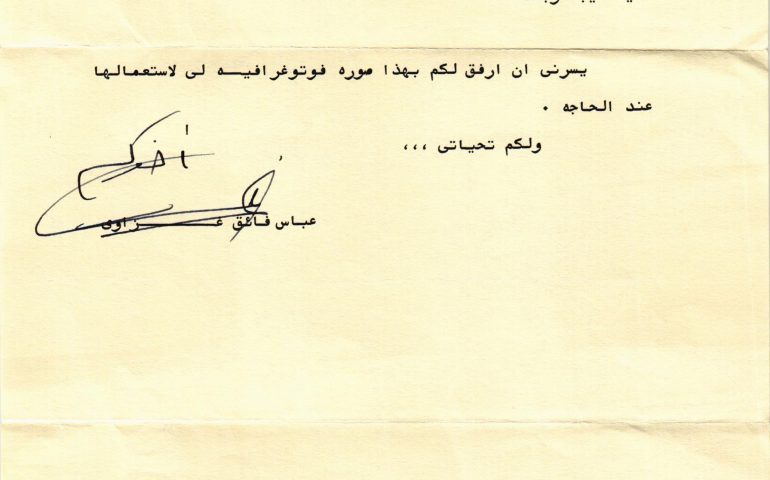 يسرنى ان ارفق لكم بهذا صوره فوتوغرافيــه لى لاستعمالها
عند الحاجه .
ولكم تحياتى ,,,
أخوكم
عباس فائق غـــــزاوى